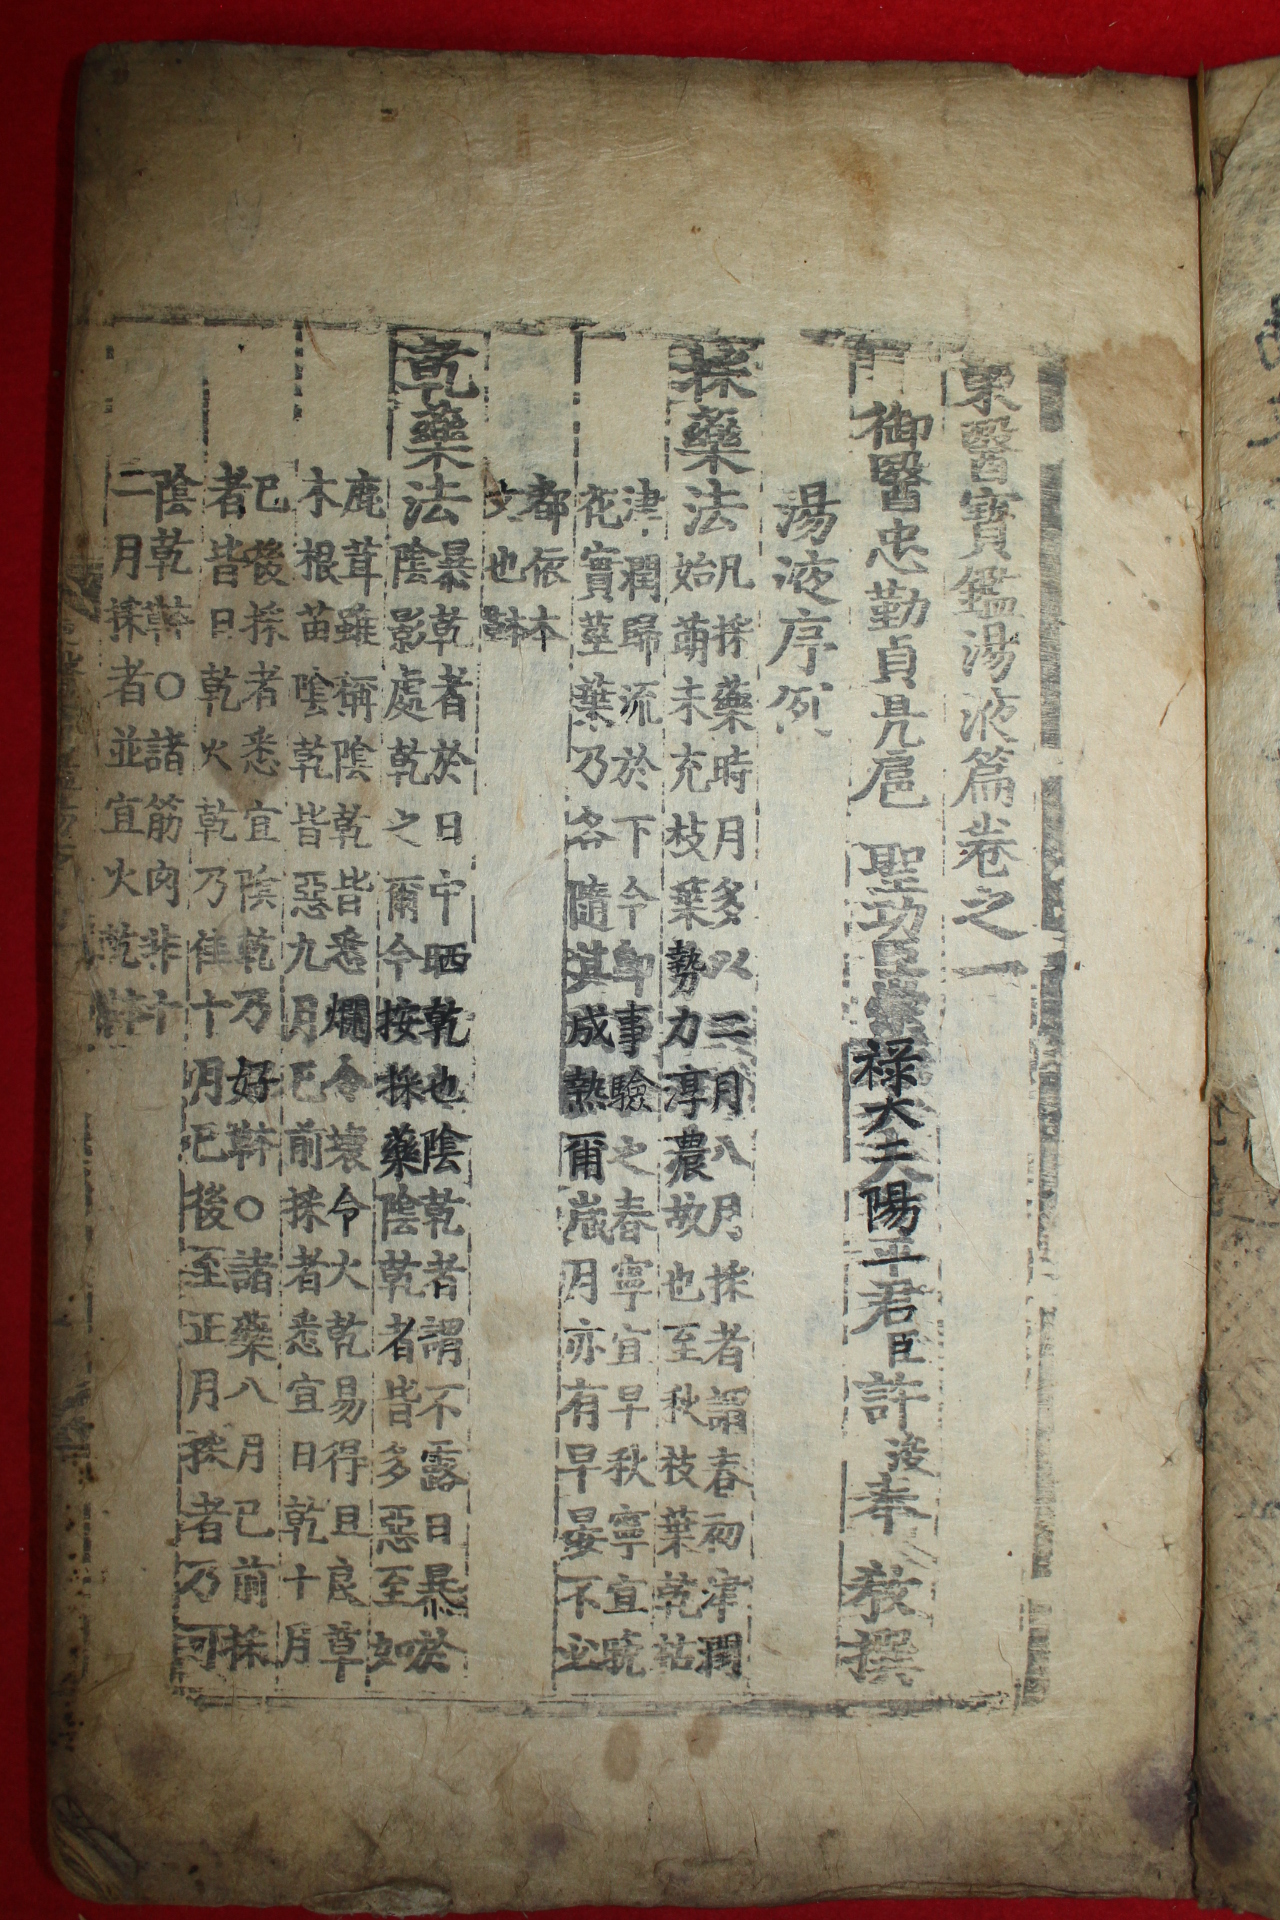 東醫寶鑑湯液篇卷之一
御醫忠勤貞亮扈 聖功臣崇祿大夫陽平君臣許浚奉 教撰
湯液序例
採藥法
凡採藥時月多以二月八月採者謂春初津潤
始萌未充枝葉勢力淳濃故也至秋枝葉乾枯
津潤歸流於下今卽事驗之春寧宜早秋寧宜晩
花實莖葉乃各隨其成熟爾歲月亦有早晏不必
都依本
文也本草
乾藥法
暴乾者於日中晒乾也陰乾者謂不露日暴於
陰影處乾之爾今按採藥陰乾者皆多惡至如
鹿茸雖稱陰乾皆悉爛令壞令火乾易得且良草
木根苗陰乾皆惡九月已前採者悉宜日乾十月
已後採者悉宜陰乾乃好本草○諸藥八月已前採
者皆日乾火乾乃佳十月已後至正月採者乃可
陰乾本草○諸筋肉非十
二月採者並宜火乾本草